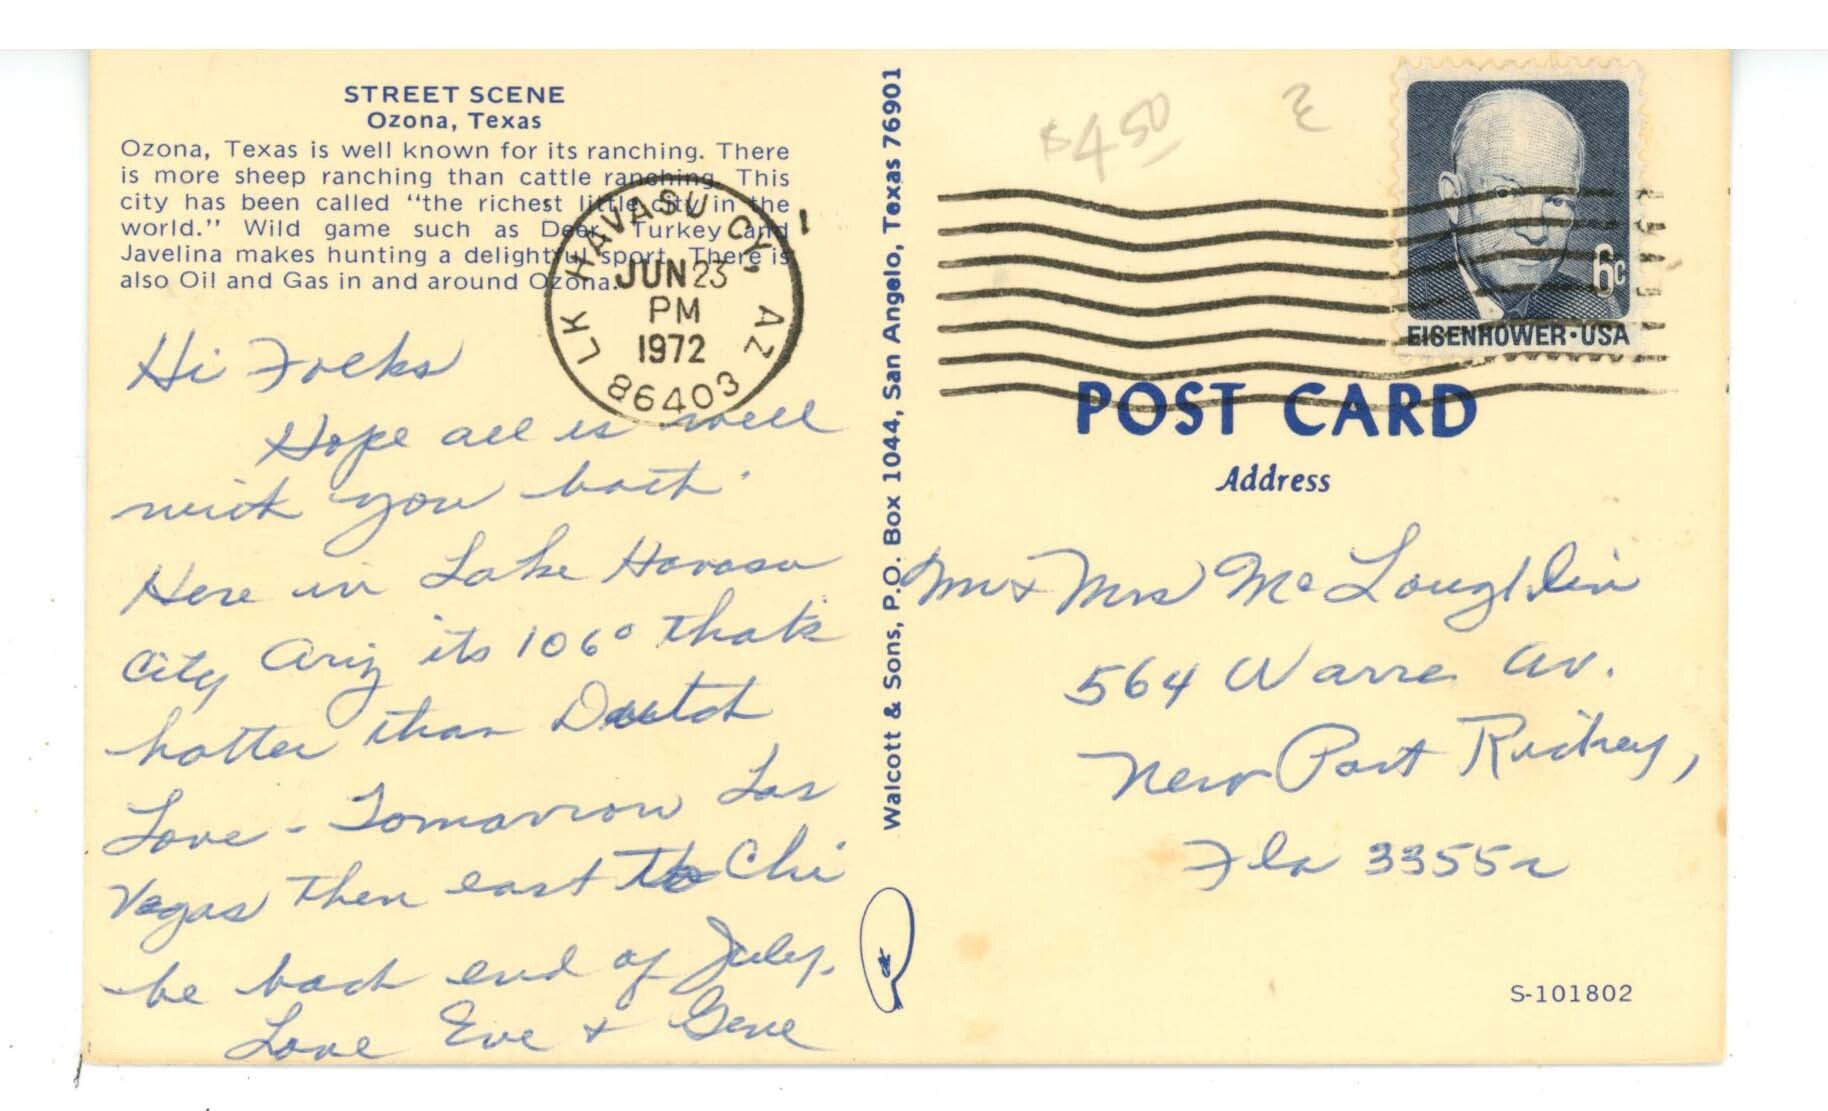 STREET SCENE
Ozona, Texas
Ozona, Texas is well known for its ranching. There
is more sheep ranching than cattle ranching. This
city has been called "the richest little city in the
world." Wild game such as Deer, Turkey and
Javelina makes hunting a delightful sport. There is
also Oil and Gas in and around Ozona.
LK HAVASU CY, AZ
JUN 23
PM
1972
86403
Hi Folks
Hope all is well
with you both.
Here in Lake Havasu
City Ariz its 106° that's
hotter than Dutch
Love - Tomorrow Las
Vegas then east to Chi
be back end of July.
Love Eve + Gene
Walcott & Sons, P.O. Box 1044, San Angelo, Texas 76901
$4.50
6c
EISENHOWER·USA
POST CARD
Address
Mr + Mrs McLoughlin
564 Warre Av.
New Port Richey,
Fla 33552
S-101802